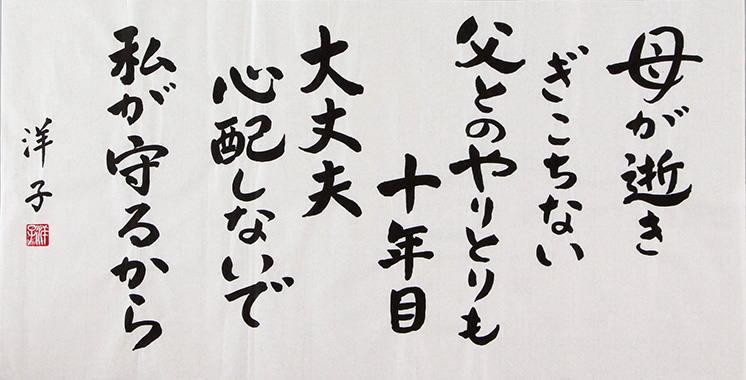 母が逝き
ぎこちない
父とのやりとりも
十年目
大丈夫
心配しないで
私が守るから
洋子
洋子